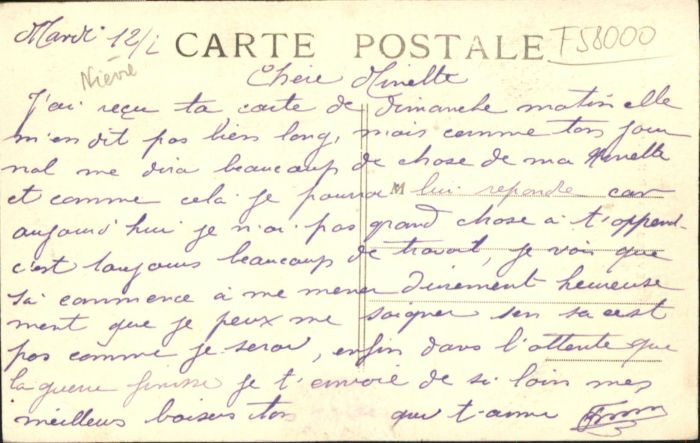 Mardi 12/1 CARTE POSTALE F58000
Nièvre
Chère Minette
J'ai reçu ta carte de dimanche matin elle
m'en dit pas bien long, mais comme ton jour
nal me dira beaucoup de chose de ma Minette
et comme cela je pourrai lui repondre car
aujourd'hui je n'ai pas grand chose à t'apprend-
c'est toujours beaucoup de travail, je vois que
sa commence à me mener durement heureuse
ment que je peux me soigner sen sa c'est
pas comme je serai, enfin dans l'attente que
la guerre finisse je t'envoie de si loin mes
meilleurs baisers ton qui t'aime